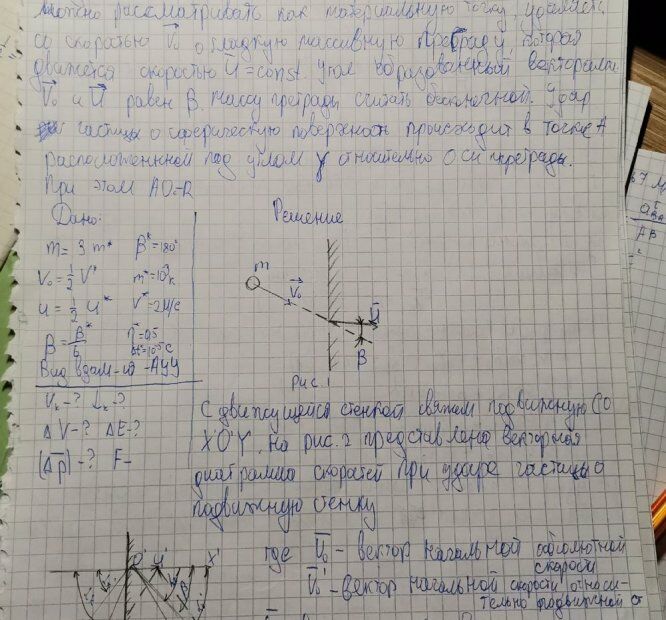 можно рассматривать как материальную точку, ударяется
со скоростью V₀ о гладкую массивную преграду, которая
движется скоростью U = const. Угол образованный векторами
V₀ и U равен β. Массу преграды считать бесконечной. Удар
частицы о сферическую поверхность происходит в точке A
расположенной под углом γ относительно оси преграды.
При этом AO=R
Дано:
m = 3 m* β* = 180°
V₀ = 1/2 V* m* = 10⁻³ к
U = 1/2 U* V* = 2 м/с
β = β*/6 η = 0,5
Δt* = 10⁻⁵ с
Вид взаим-ия - АУУ
Vк - ? Lк - ?
ΔV - ? ΔE - ?
(Δp) - ? F -
Решение
m
V₀
U
β
Рис. 1
С движущейся стенкой свяжем подвижную СО
X'O'Y'. На рис. 2 представлена векторная
диаграмма скоростей при ударе частицы о
подвижную стенку
O' U X'
β
где U₀ - вектор начальной абсолютной
скорости
U₀' - вектор начальной скорости относи-
тельно подвижной с
67
AB